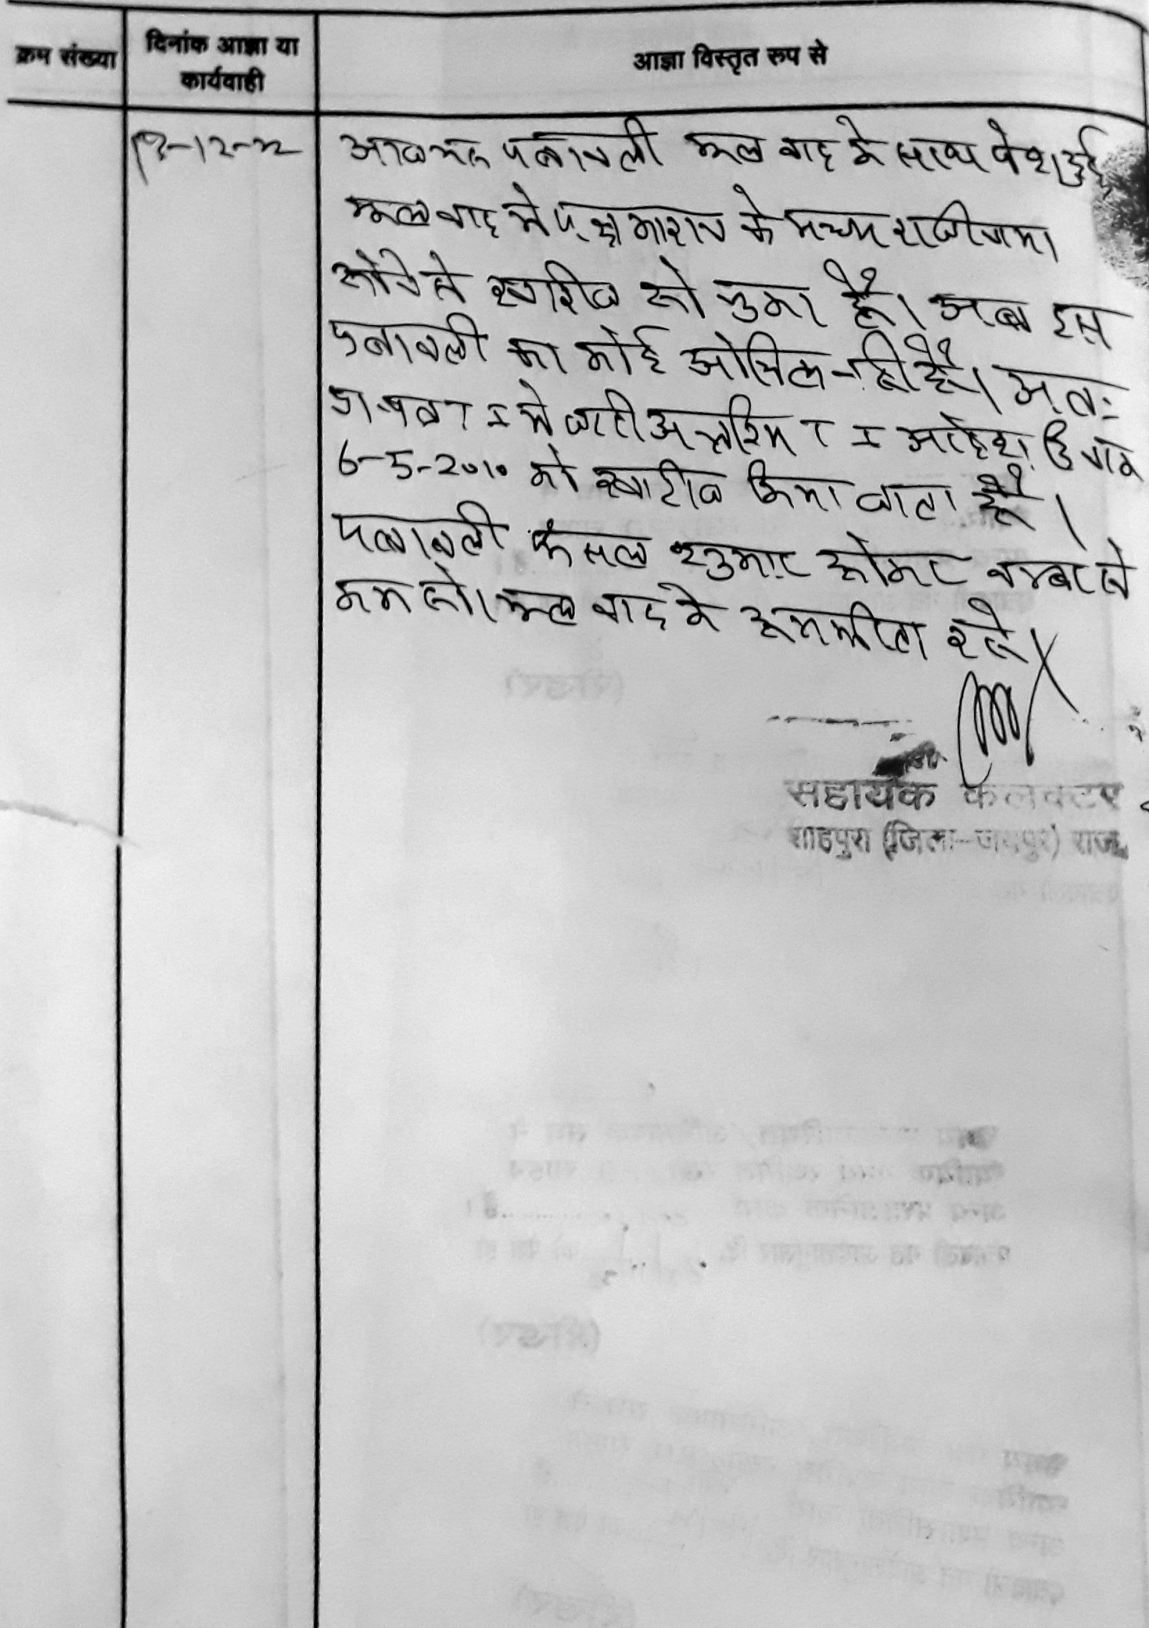 क्रम संख्या
दिनांक आज्ञा या
कार्यवाही
आज्ञा विस्तृत रूप से
12-22
पत्रावली मूल वाद के साथ पेश हुई
मूल वाद में पक्षकारान के मध्य राजीनामा
होने से खारीज हो चुका है। अब इस
पत्रावली का कोई औचित्य नहीं है। अतः
T I में जारी अन्तरिम T I आदेश
6-5-2010 को खारीज किया जाता है।
पत्रावली फैसल शुमार होकर नम्बर से
कम हो। मूल वाद के रहे।
सहायक कलक्टर
शाहपुरा (जिला-जयपुर) राज.